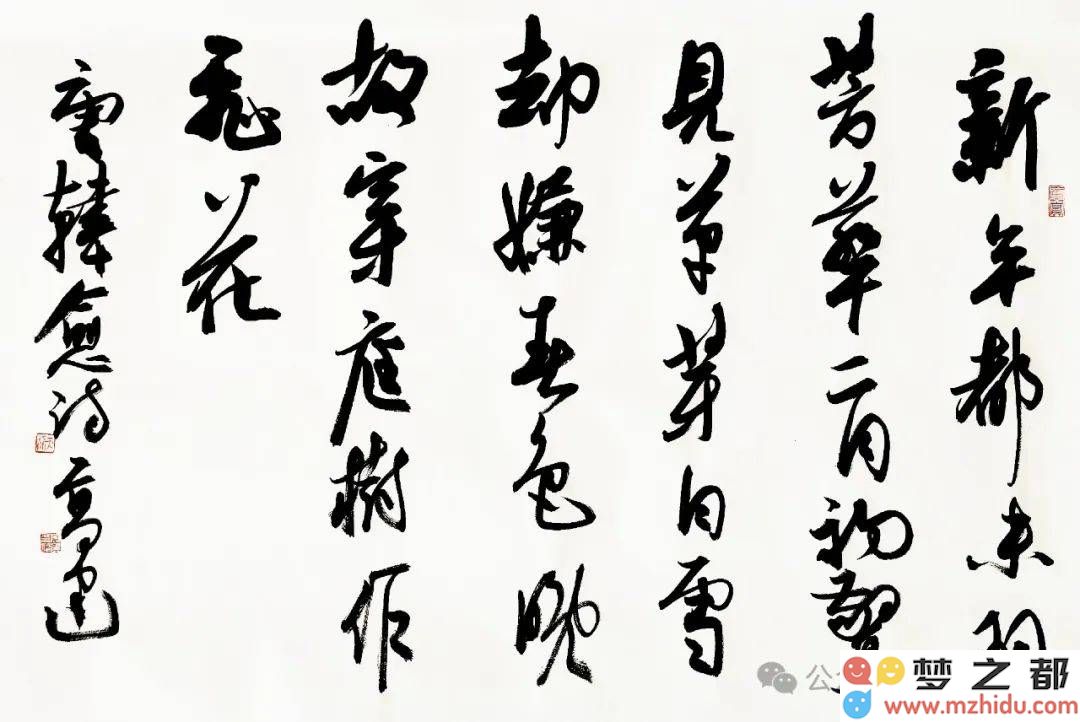 新年都未有
芳華二月初驚
見草芽白雪
却嫌春色晚
故穿庭樹作
飛花
韓愈詩
公
梦之都
www.mzhidu.com